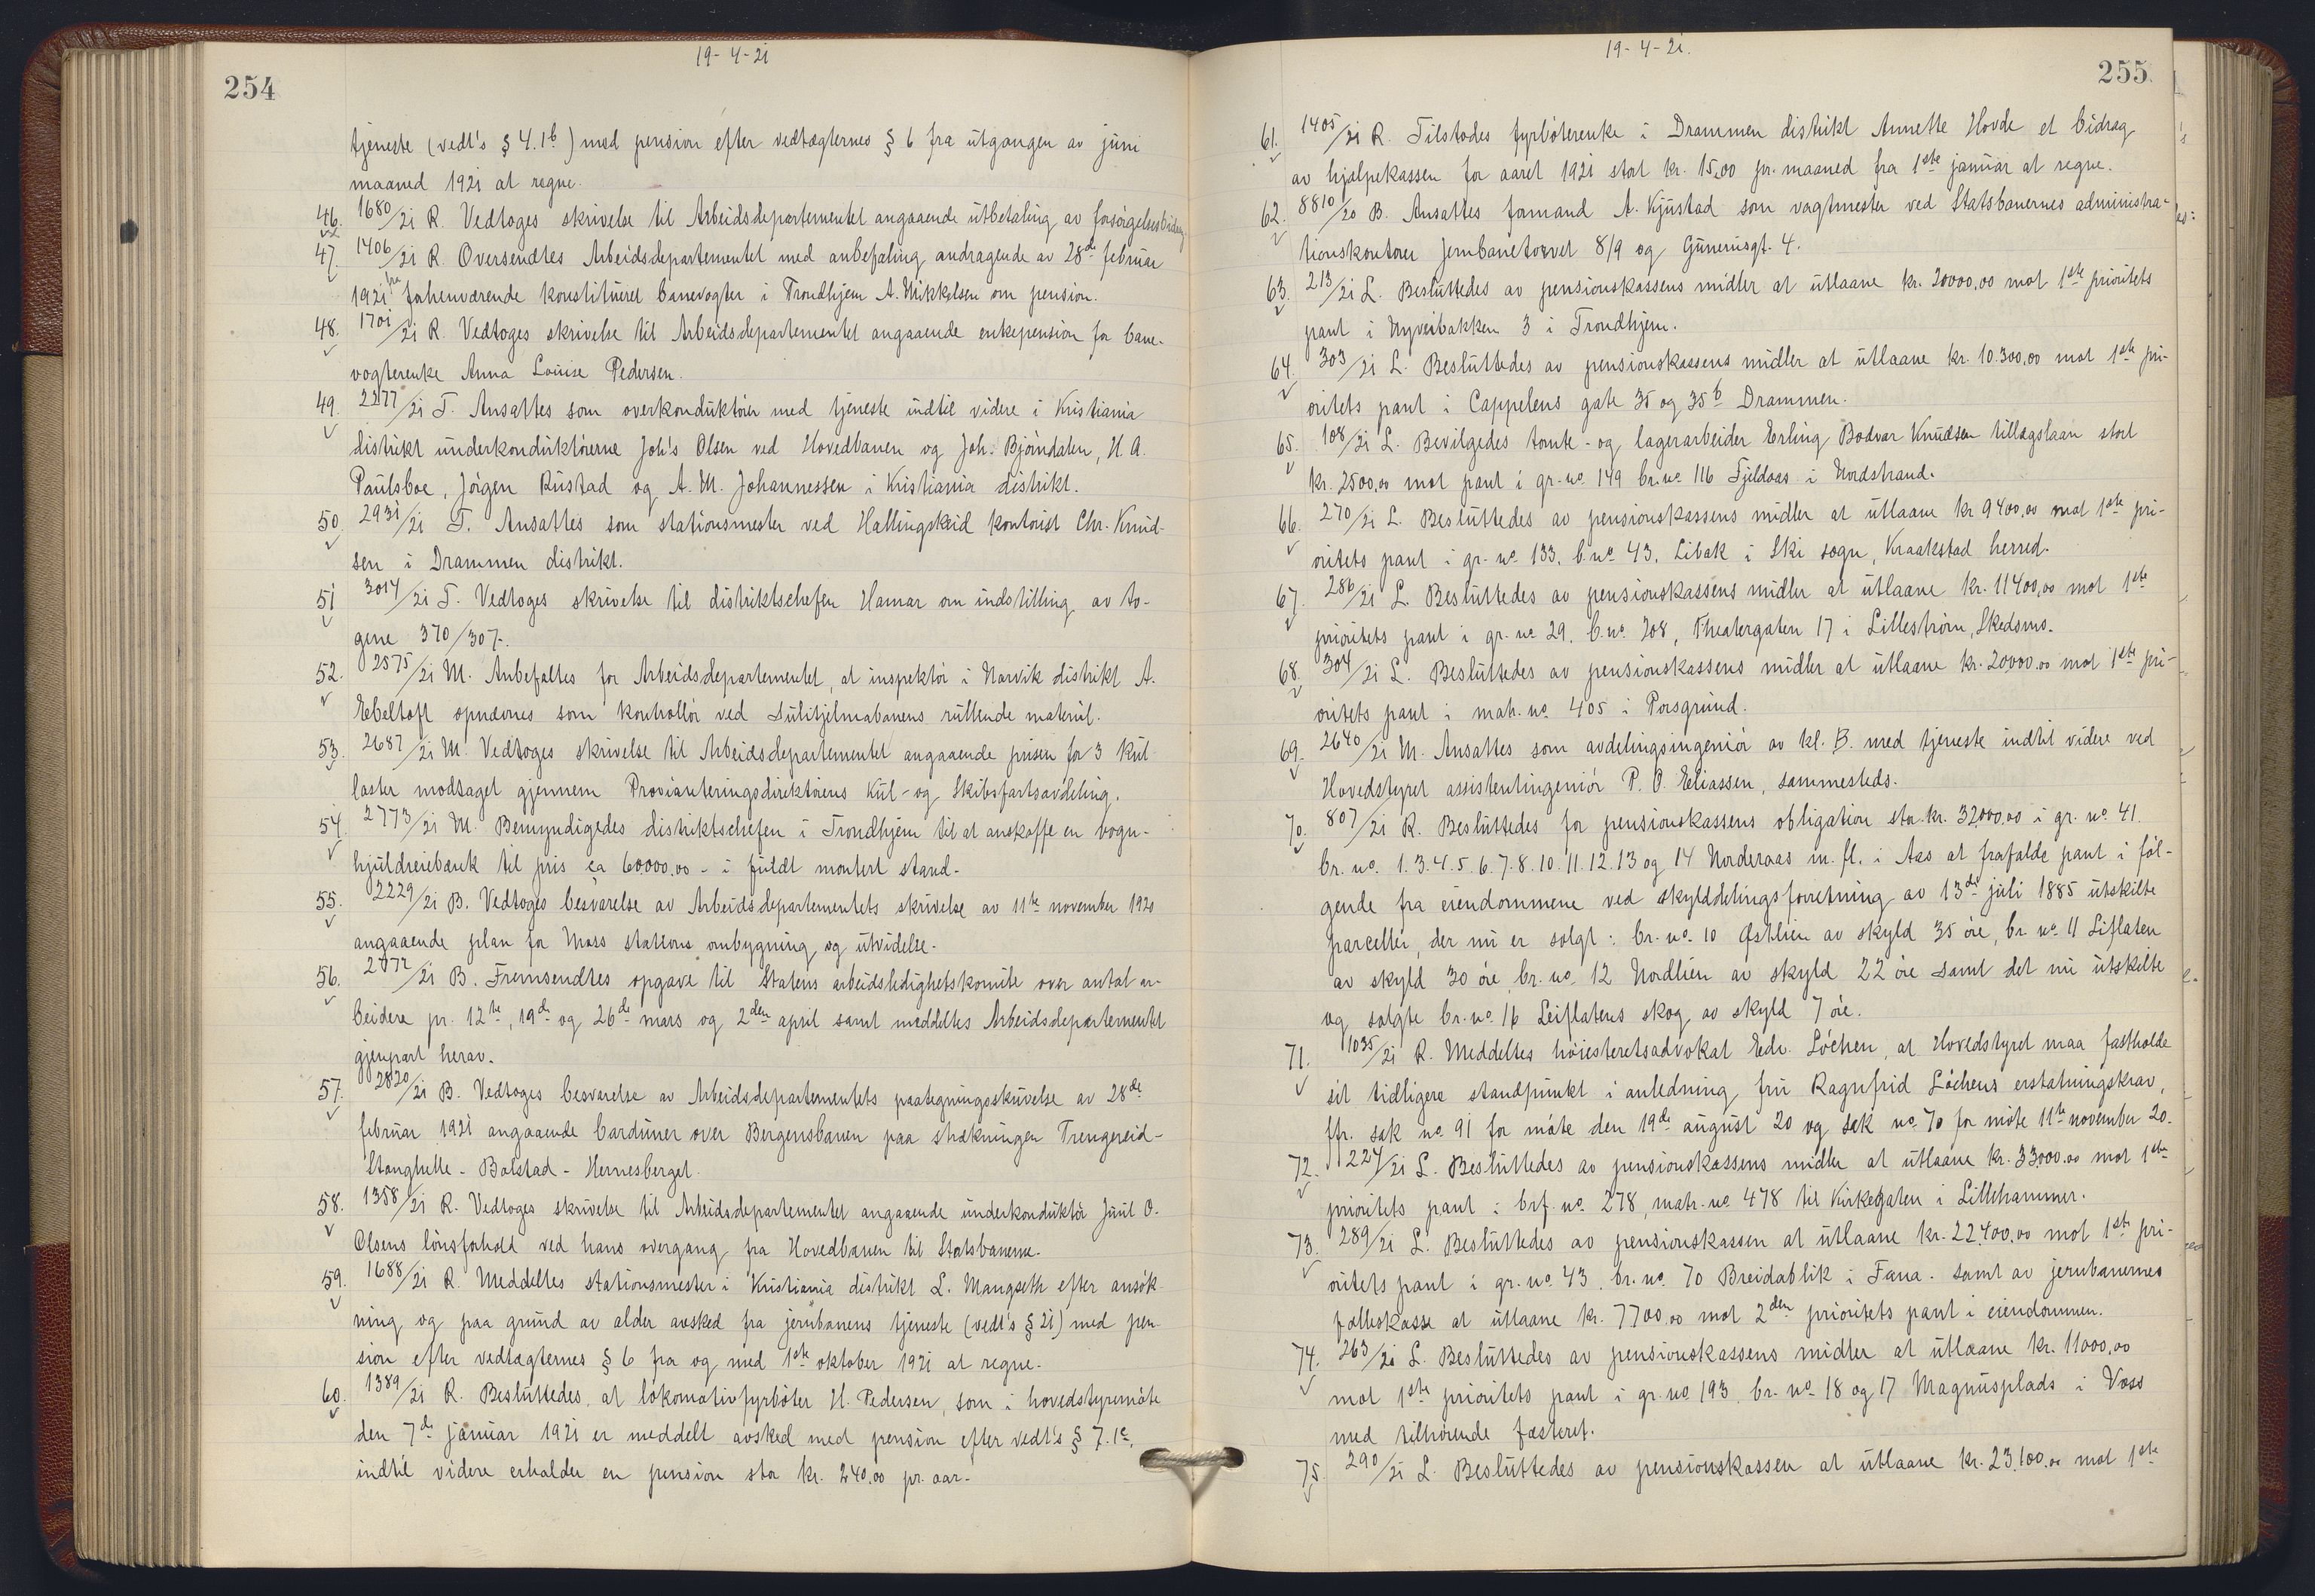 19-4-21
254
tjeneste (vedt's § 4.1b) med pension efter vedtægternes § 6 fra utgangen av juni
maaned 1921 at regne.
46. 1680/21 R. Vedtoges skrivelse til Arbeidsdepartementet angaaende utbetaling av forsørgelsesbidrag
47. 1406/21 R. Oversendtes Arbeidsdepartementet med anbefaling andragende av 28de februar
1921 fra forhenværende konstitueret banevogter i Trondhjem A. Mikkelsen om pension.
48. 1701/21 R. Vedtoges skrivelse til Arbeidsdepartementet angaaende enkepension for bane-
vogterenke Anna Louise Pedersen.
49. 2277/21 T. Ansattes som overkonduktører med tjeneste indtil videre i Kristiania
distrikt underkonduktørerne Joh's Olsen ved Hovedbanen og Joh. Bjørndalen, H. A.
Paulsboe, Jørgen Rustad og A. M. Johannessen i Kristiania distrikt.
50. 2931/21 T. Ansattes som stationsmester ved Hallingskeid kontorist Chr. Knud-
sen i Drammen distrikt.
51 3014/21 T. Vedtoges skrivelse til distriktschefen Hamar om indstilling av to-
gene 370/307.
52. 2575/21 M. Anbefaltes for Arbeidsdepartementet, at inspektør i Narvik distrikt A.
Ebeltoft opnævnes som kontrollør ved Sulitjelmabanens rullende materiel.
53. 2687/21 M. Vedtoges skrivelse til Arbeidsdepartementet angaaende prisen for 3 kul
laster modtaget gjennem Provianteringsdirektørens Kul- og Skibsfartsavdeling.
54. 2773/21 M. Bemyndigedes distriktschefen i Trondhjem til at anskaffe en vogn-
hjuldreiebænk til pris ca 60000.00 - i fuldt montert stand.
55. 2229/21 B. Vedtoges besvarelse av Arbeidsdepartementets skrivelse av 11te november 1920
angaaende plan for Moss stations ombygning og utvidelse.
56. 2772/21 B. Fremsendtes opgave til Statens arbeidsledighetskomite over antal ar-
beidere pr. 12te, 19de og 26de mars og 2den april samt meddeltes Arbeidsdepartementet
gjenpart herav.
57. 2820/21 B. Vedtoges besvarelse av Arbeidsdepartementets paategningsskrivelse av 28de
februar 1921 angaaende barduner over Bergensbanen paa strækningen Trengereid-
Stanghelle - Bolstad - Hernesberget.
58. 1358/21 R. Vedtoges skrivelse til Arbeidsdepartementet angaaende underkonduktør Juul O.
Olsens lønsforhold ved hans overgang fra Hovedbanen til Statsbanerne.
59. 1688/21 R. Meddeltes stationsmester i Kristiania distrikt L. Mangseth efter ansøk-
ning og paa grund av alder avsked fra jernbanens tjeneste (vedt's § 21) med pen-
sion efter vedtægternes § 6 fra og med 1ste oktober 1921 at regne.
60. 1389/21 R. Besluttedes, at lokomotivfyrbøter H. Pedersen, som i hovedstyremøte
den 7de januar 1921 er meddelt avsked med pension efter vedt's § 7.1c,
indtil videre erholder en pension stor kr. 240.00 pr. aar.
19-4-21.
255
61. 1405/21 R. Tilstodes fyrbøterenke i Drammen distrikt Annette Hovde et bidrag
av hjælpekassen for aaret 1921 stort kr. 15,00 pr. maaned fra 1ste januar at regne.
62. 8810/20 B. Ansattes formand A. Kjustad som vagtmester ved Statsbanernes administra-
tionskontorer Jernbanetorvet 8/9 og Gunerusgt. 4.
63. 213/21 L. Besluttedes av pensionskassens midler at utlaane kr. 20000,00 mot 1ste prioritets
pant i Nyveibakken 3 i Trondhjem.
64. 303/21 L. Besluttedes av pensionskassens midler at utlaane kr. 10.300,00 mot 1ste pri-
oritets pant i Cappelens gate 35 og 35b Drammen.
65. 108/21 L. Bevilgedes tomte- og lagerarbeider Erling Bodvar Knudsen tillægslaan stort
kr. 2500,00 mot pant i gr. no 149 br. no. 116 Fjeldaas i Nordstrand.
66. 270/21 L. Besluttedes av pensionskassens midler at utlaane kr 9400,00 mot 1ste pri-
oritets pant i gr. no 133. b. no 43. Libak i Ski sogn, Kraakstad herred.
67. 286/21 L. Besluttedes av pensionskassens midler at utlaane kr. 11400,00 mot 1ste
prioritets pant i gr. no 29. b. no. 208, Theatergaten 17 i Lillestrøm, Skedsmo.
68. 304/21 L. Besluttedes av pensionskassens midler at utlaane kr. 20000.00 mot 1ste pri-
oritets pant i matr. no. 405 i Porsgrund.
69. 2640/21 M. Ansattes som avdelingsingeniør av kl. B. med tjeneste indtil videre ved
Hovedstyret assistentingeniør P. O. Eliassen, sammesteds.
70. 807/21 R. Besluttedes for pensionskassens obligation stor kr. 32000,00 i gr. no. 41.
br. no. 1. 3. 4. 5. 6. 7. 8. 10. 11. 12. 13 og 14 Norderaas m. fl. i Aas at frafalde pant i føl-
gende fra eiendommene ved skylddelingsforretning av 13de juli 1885 utskilte
parceller, der nu er solgt: br. no. 10 Østlien av skyld 35 øre, br. no. 11 Liflaten
av skyld 30 øre, br. no. 12 Nordlien av skyld 22 øre samt det nu utskilte
og solgte br. no. 16 Leiflatens skog av skyld 7 øre.
71. 1035/21 R. Meddeltes høiesteretsadvokat Edv. Løchen, at Hovedstyret maa fastholde
sit tidligere standpunkt i anledning fru Ragnfrid Løchens erstatningskrav,
jfr. sak no. 91 for møte den 19de august 20 og sak no. 70 for møte 11te november 20.
72. 224/21 L. Besluttedes av pensionskassens midler at utlaane kr. 33000.00 mot 1ste
prioritets pant i brf. no. 278, matr. no. 478 til Kirkegaten i Lillehammer.
73. 289/21 L. Besluttedes av pensionskassen at utlaane kr. 22.400,00 mot 1ste pri-
oritets pant i gr. no. 43. br. no. 70 Breidablik i Fana. samt av jernbanernes
fælleskasse at utlaane kr. 7700,00 mot 2den prioritets pant i eiendommen.
74. 263/21 L. Besluttedes av pensionskassens midler at utlaane kr. 11000,00
mot 1ste prioritets pant i gr. no 193. br. no. 18 og 17 Magnusplads i Voss
med tilhørende festeret.
75. 290/21 L. Besluttedes av pensionskassen at utlaane kr. 23,100.00 mot 1ste